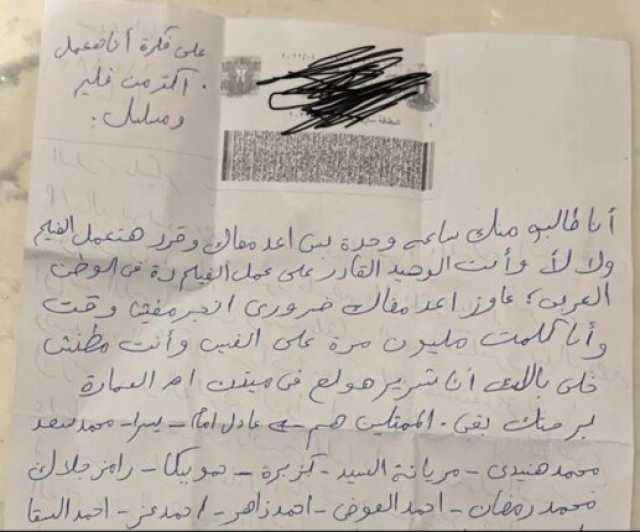 على فكرة أنا هعمل
أكتر من فيلم
ومسلسل.
أنا طالبه منك ساعه وحدة بس اعد معاك وقرر هتعمل الفيلم
ولا لأ وأنت الوحيد القادر على عمل الفيلم دة فى الوطن
العربى؛ عاوز اعد معاك ضرورى انجز مفيش وقت
وأنا كلمتك مليون مرة على الفيس وأنت مطنش
خلى بالك أنا شرير هولع فى ام العمارة
لو منك بقى. الممثلين هم عادل امام - يسرا - محمد سعد
محمد هنيدى - مريانة السيد - كزبرة - حمو بيكا - رامز جلال
محمد رمضان - احمد العوضى - احمد زاهر - احمد عز - احمد السقا